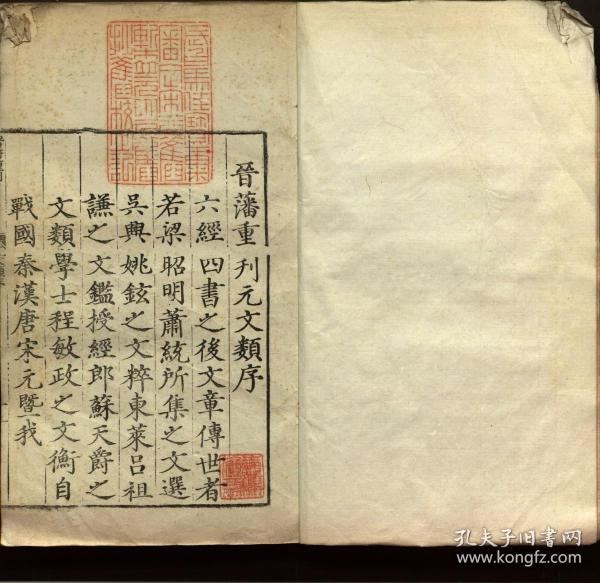 晉藩重刊元文類序
六經四書之後文章傳世者
若梁昭明蕭統所集之文選
吳興姚鉉之文粹東萊呂祖
謙之文鑑授經郎蘇天爵之
文類學士程敏政之文衡自
戰國秦漢唐宋元暨我
孔夫子旧书网
www.kongfz.com